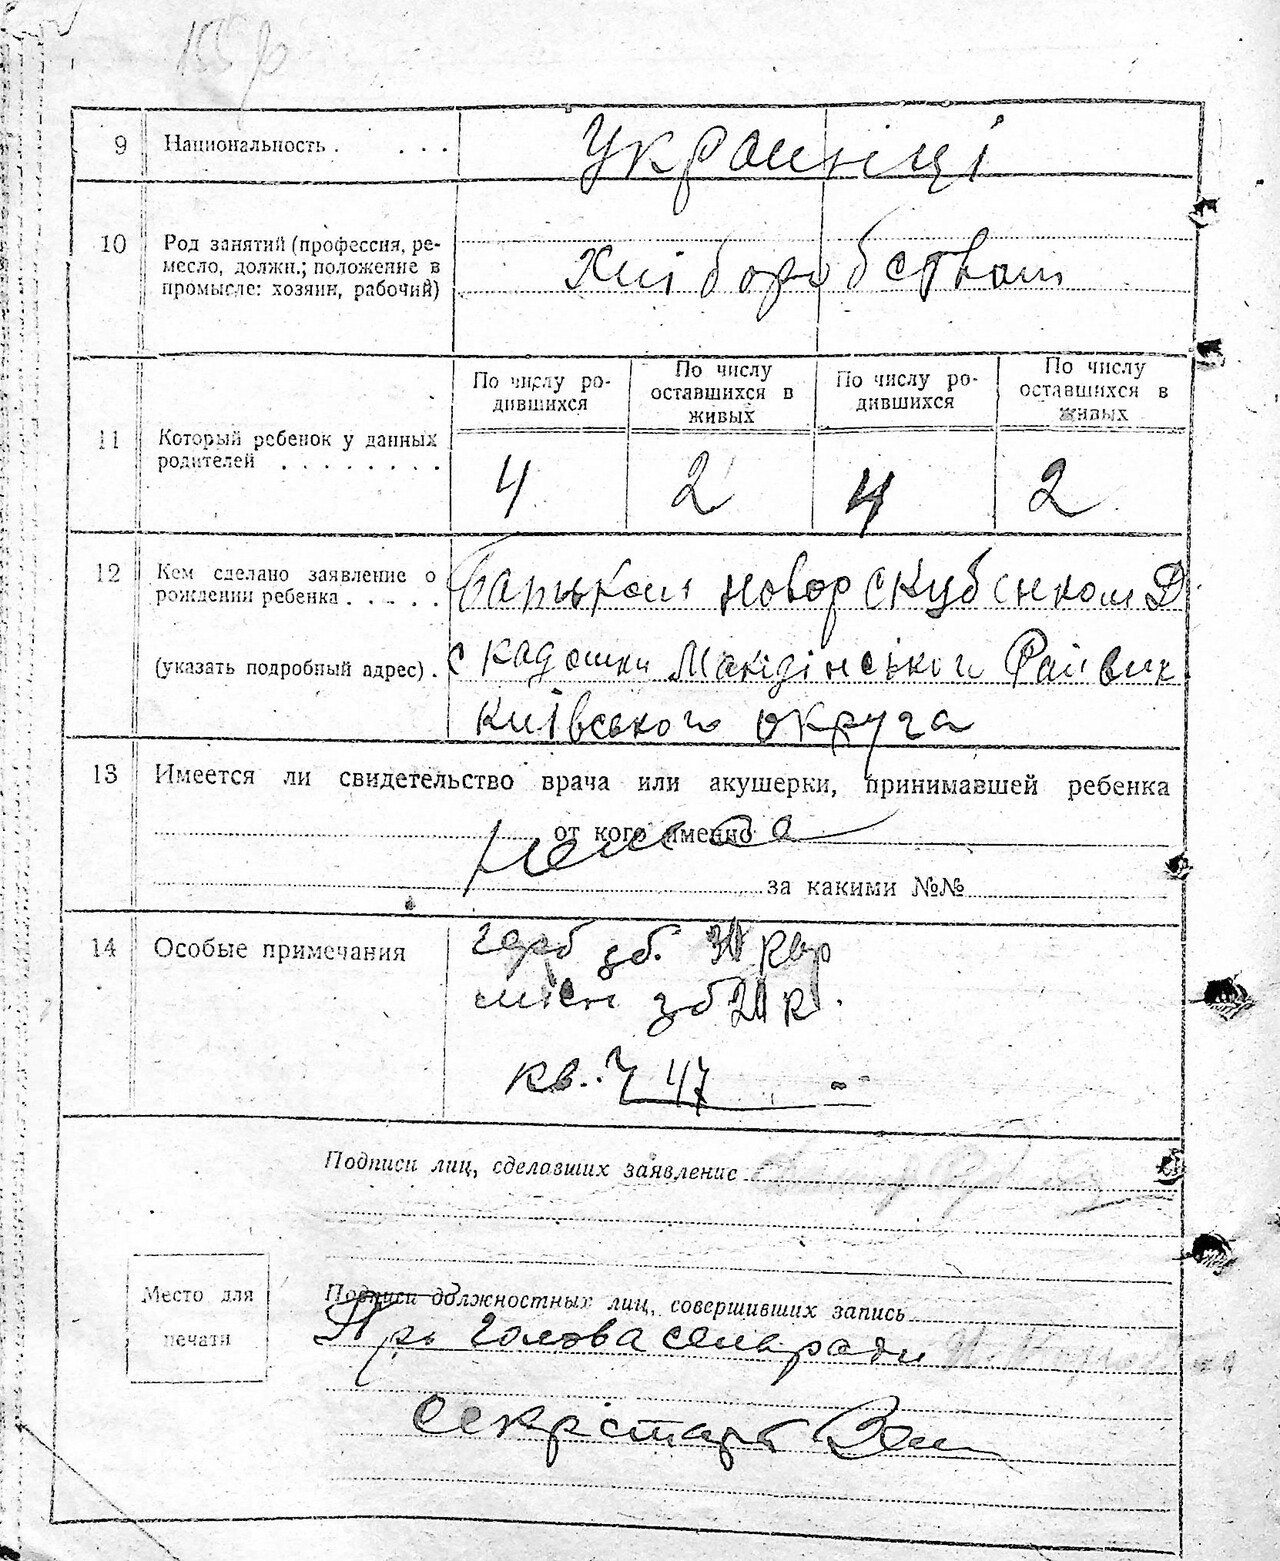 155 р
9 Национальность . . . . Украиніці
10 Род занятий (профессия, ре-
месло, должн.; положение в
промысле: хозяин, рабочий)
хліборобством
11 Который ребенок у данных
родителей . . . . . . . .
По числу ро-
дившихся
По числу
оставшихся в
живых
По числу ро-
дившихся
По числу
оставшихся в
живых
4 2 4 2
12 Кем сделано заявление о
рождении ребенка . . . . .
(указать подробный адрес) .
батьком новор Скубенком Д
с кадомки Райвик
Київського округа
13 Имеется ли свидетельство врача или акушерки, принимавшей ребенка
от кого именно
нема
за какими №№
14 Особые примечания
герб зб. кар
місн зб к.
кв. ч 47
Подписи лиц, сделавших заявление
Место для
печати
Подписи должностных лиц, совершивших запись
голова сельради
Секретарь